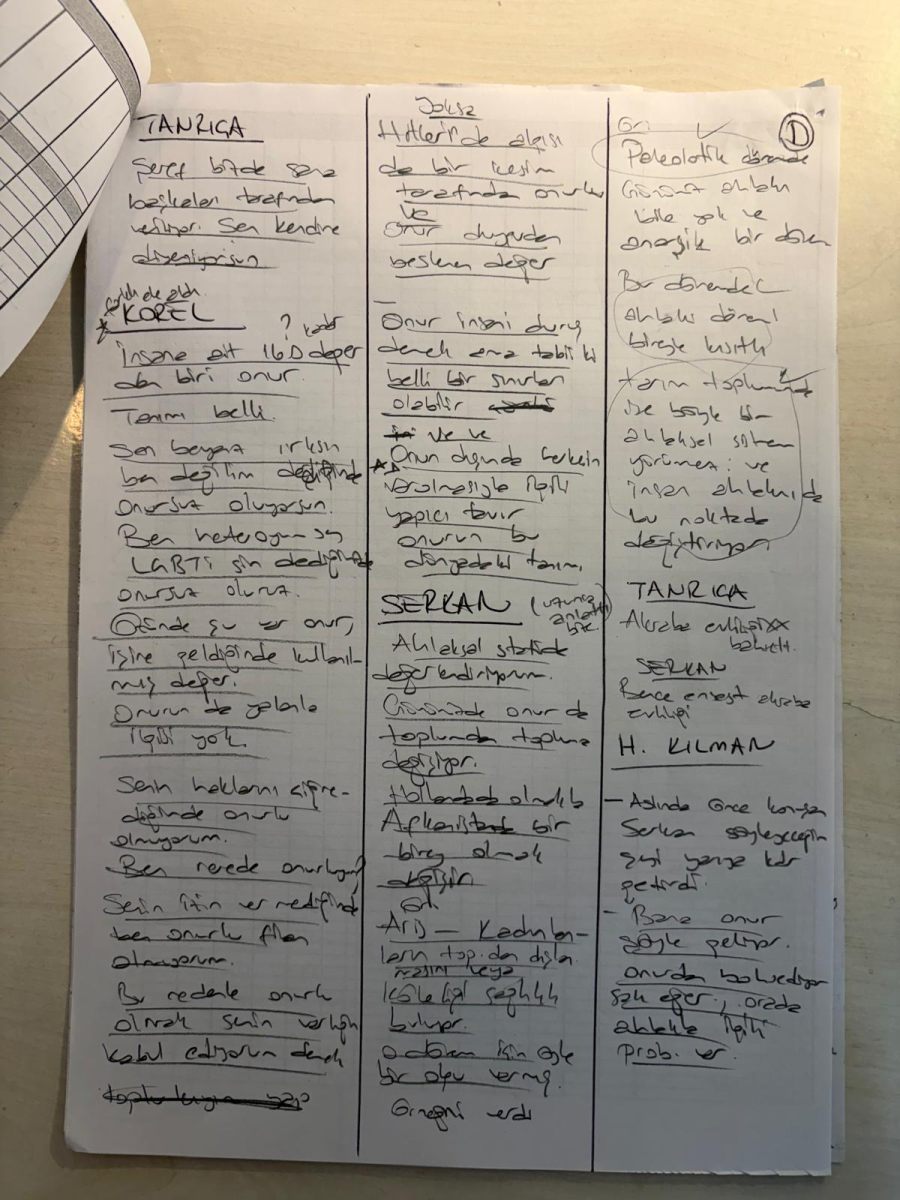 TANRIÇA
Şeref bizde sana
başkaları tarafından
veriliyor. Sen kendine
diyemiyorsun
KOREL
? kadar
İnsana ait 160 değer
den biri onur.
Tanımı belli.
Sen beyaz ırksın
ben değilim dediğinde
onursuz oluyorsun.
Ben heteroyum sen
LGBTİ sin dediğinde
onursuz oluruz.
Özünde şu var onur,
işine geldiğinde kullanıl-
mış değer.
Onurun da yalanla
ilgisi yok.
Senin haklarını çiğne-
diğinde onurlu
olmuyorum.
Ben nerede onurluyum?
Senin için vermediğinde
ben onurlu filan
olmuyorum.
Bu nedenle onurlu
olmak senin varlığını
kabul ediyorum demek
Yoksa
Hitler'i de algısı
da bir kesim
tarafından onurlu
ve
Onur duygudan
beslenen değer
Onur insani duruş
demek ama tabii ki
belli bir sınırları
olabilir
ve ve
Onun dışında herkesin
varolmasıyla ilgili
yapıcı tavır
onurun bu
dünyadaki tanımı
SERKAN (uzunca
anlattı
biz.
Ahlaksal statüde
değerlendiriyorum.
Günümüzde onur da
toplumdan topluma
değişiyor.
Hollandada olmakla
Afganistanda bir
birey olmak
değişir
Aris — Kadınla-
ların top.dan dışla
masını veya
köleliği sağlıklı
buluyor.
o dönem için öyle
bir olgu varmış.
Örneğini verdi
D
Paleolotik dönemde
Günümüz ahlakı
bile yok ve
anarşik bir dönem
Bu dönemde
ahlaki dönem
bireyle kısıtlı
tarım toplumunda
ise böyle bir
ahlaksal sistem
yürümez: ve
insan ahlakını da
bu noktada
değiştiriyor
TANRIÇA
Akraba evliliği
bahsetti.
SERKAN
Bence ensest akraba
evliliği
H. KILMAN
— Aslında önce konuşan
Serkan söyleyeceğim
şeyi yarıya kdr
getirdi.
- Bana onur
şöyle geliyor.
onurdan bahsediyor
sak eğer, orada
ahlakla ilgili
prob. var.